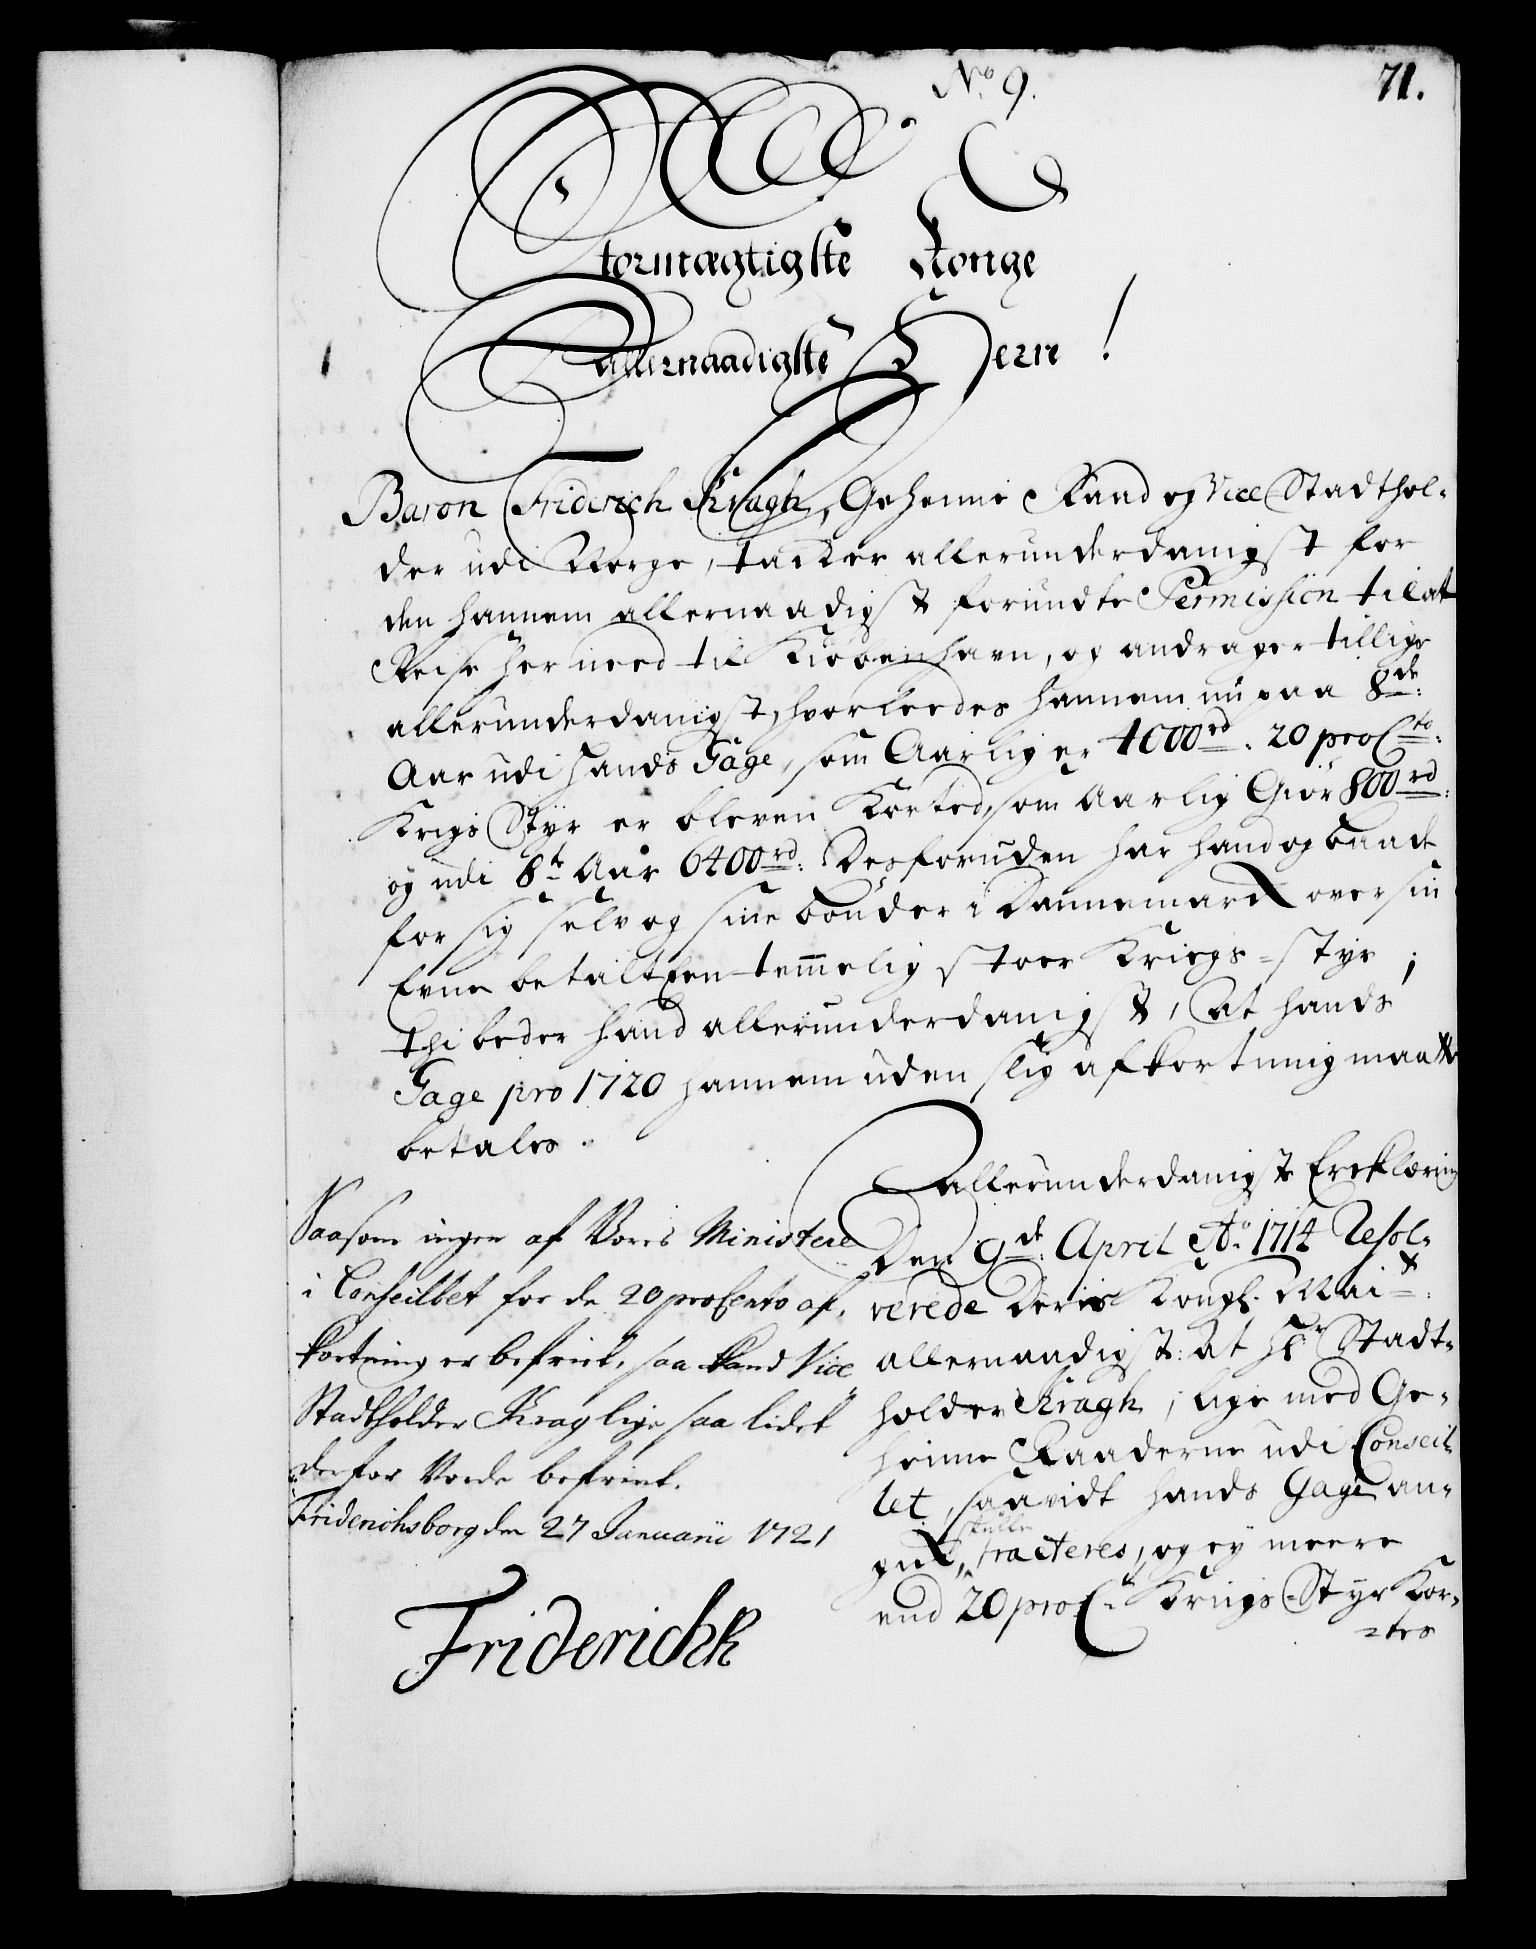 No. 9.
71.
Stormægtigste Konge
Allernaadigste Herre!
Baron Friderich Kragh, Geheime Raad og Vice Stadthol-
der udi Norge, tacker allerunderdanigst for
den hannem allernaadigst forundte Permission til at
Reise her need til Kiøbenhavn, og andrager tillige
allerunderdanigst, hvorleedes hannem nu paa 8de:
Aar udi hands Gage, som Aarlig er 4000rd. 20 pro Cto:
Krigs Styr er bleven Korted, som Aarlig Giør 800rd:
og udi 8te Aar 6400rd: Desforuden har hand og baade
for sig selv og sine bønder i Dannemarck over sin
Evne betalt een temmelig stoer Kriegs-styr;
thi beder hand allerunderdanigst, At hands
Gage pro 1720 hannem uden slig afkortning maatte
betales.
allerunderdanigste Ercklæring
Den 9de: April Ao. 1714 Resol-
verede Deris Kongl. Maitt:
allernaadigst: At Hr Stadt-
holder Kragh, lige med Ge-
heime Raaderne udi Conseil-
let, saavidt hands Gage an-
gik, skulle tracteres, og ey meere
end 20 pro C. Kriigs-Styr Kor-
=tes
Saasom ingen af Voris Ministere
i Conseillet for de 20 pro Cento af-
kortning er befriet, saa kand Vice
Stadtholder Krag lige saa lidet
derfor Vorde befriet.
Friderichsborg den 27 Januarii 1721
Friderich R